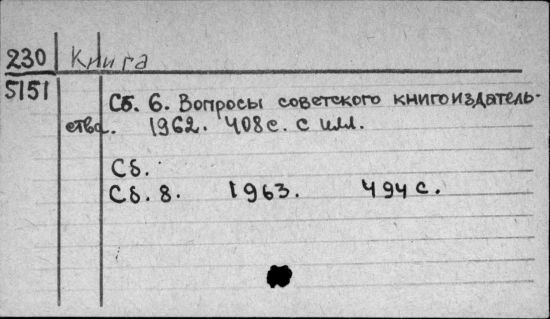 230 Книга
5151
Сб. 6. Вопросы советского книгоиздатель-
ства. 1962. 408с. с илл.
Сб.
Сб. 8. 1963. 494с.